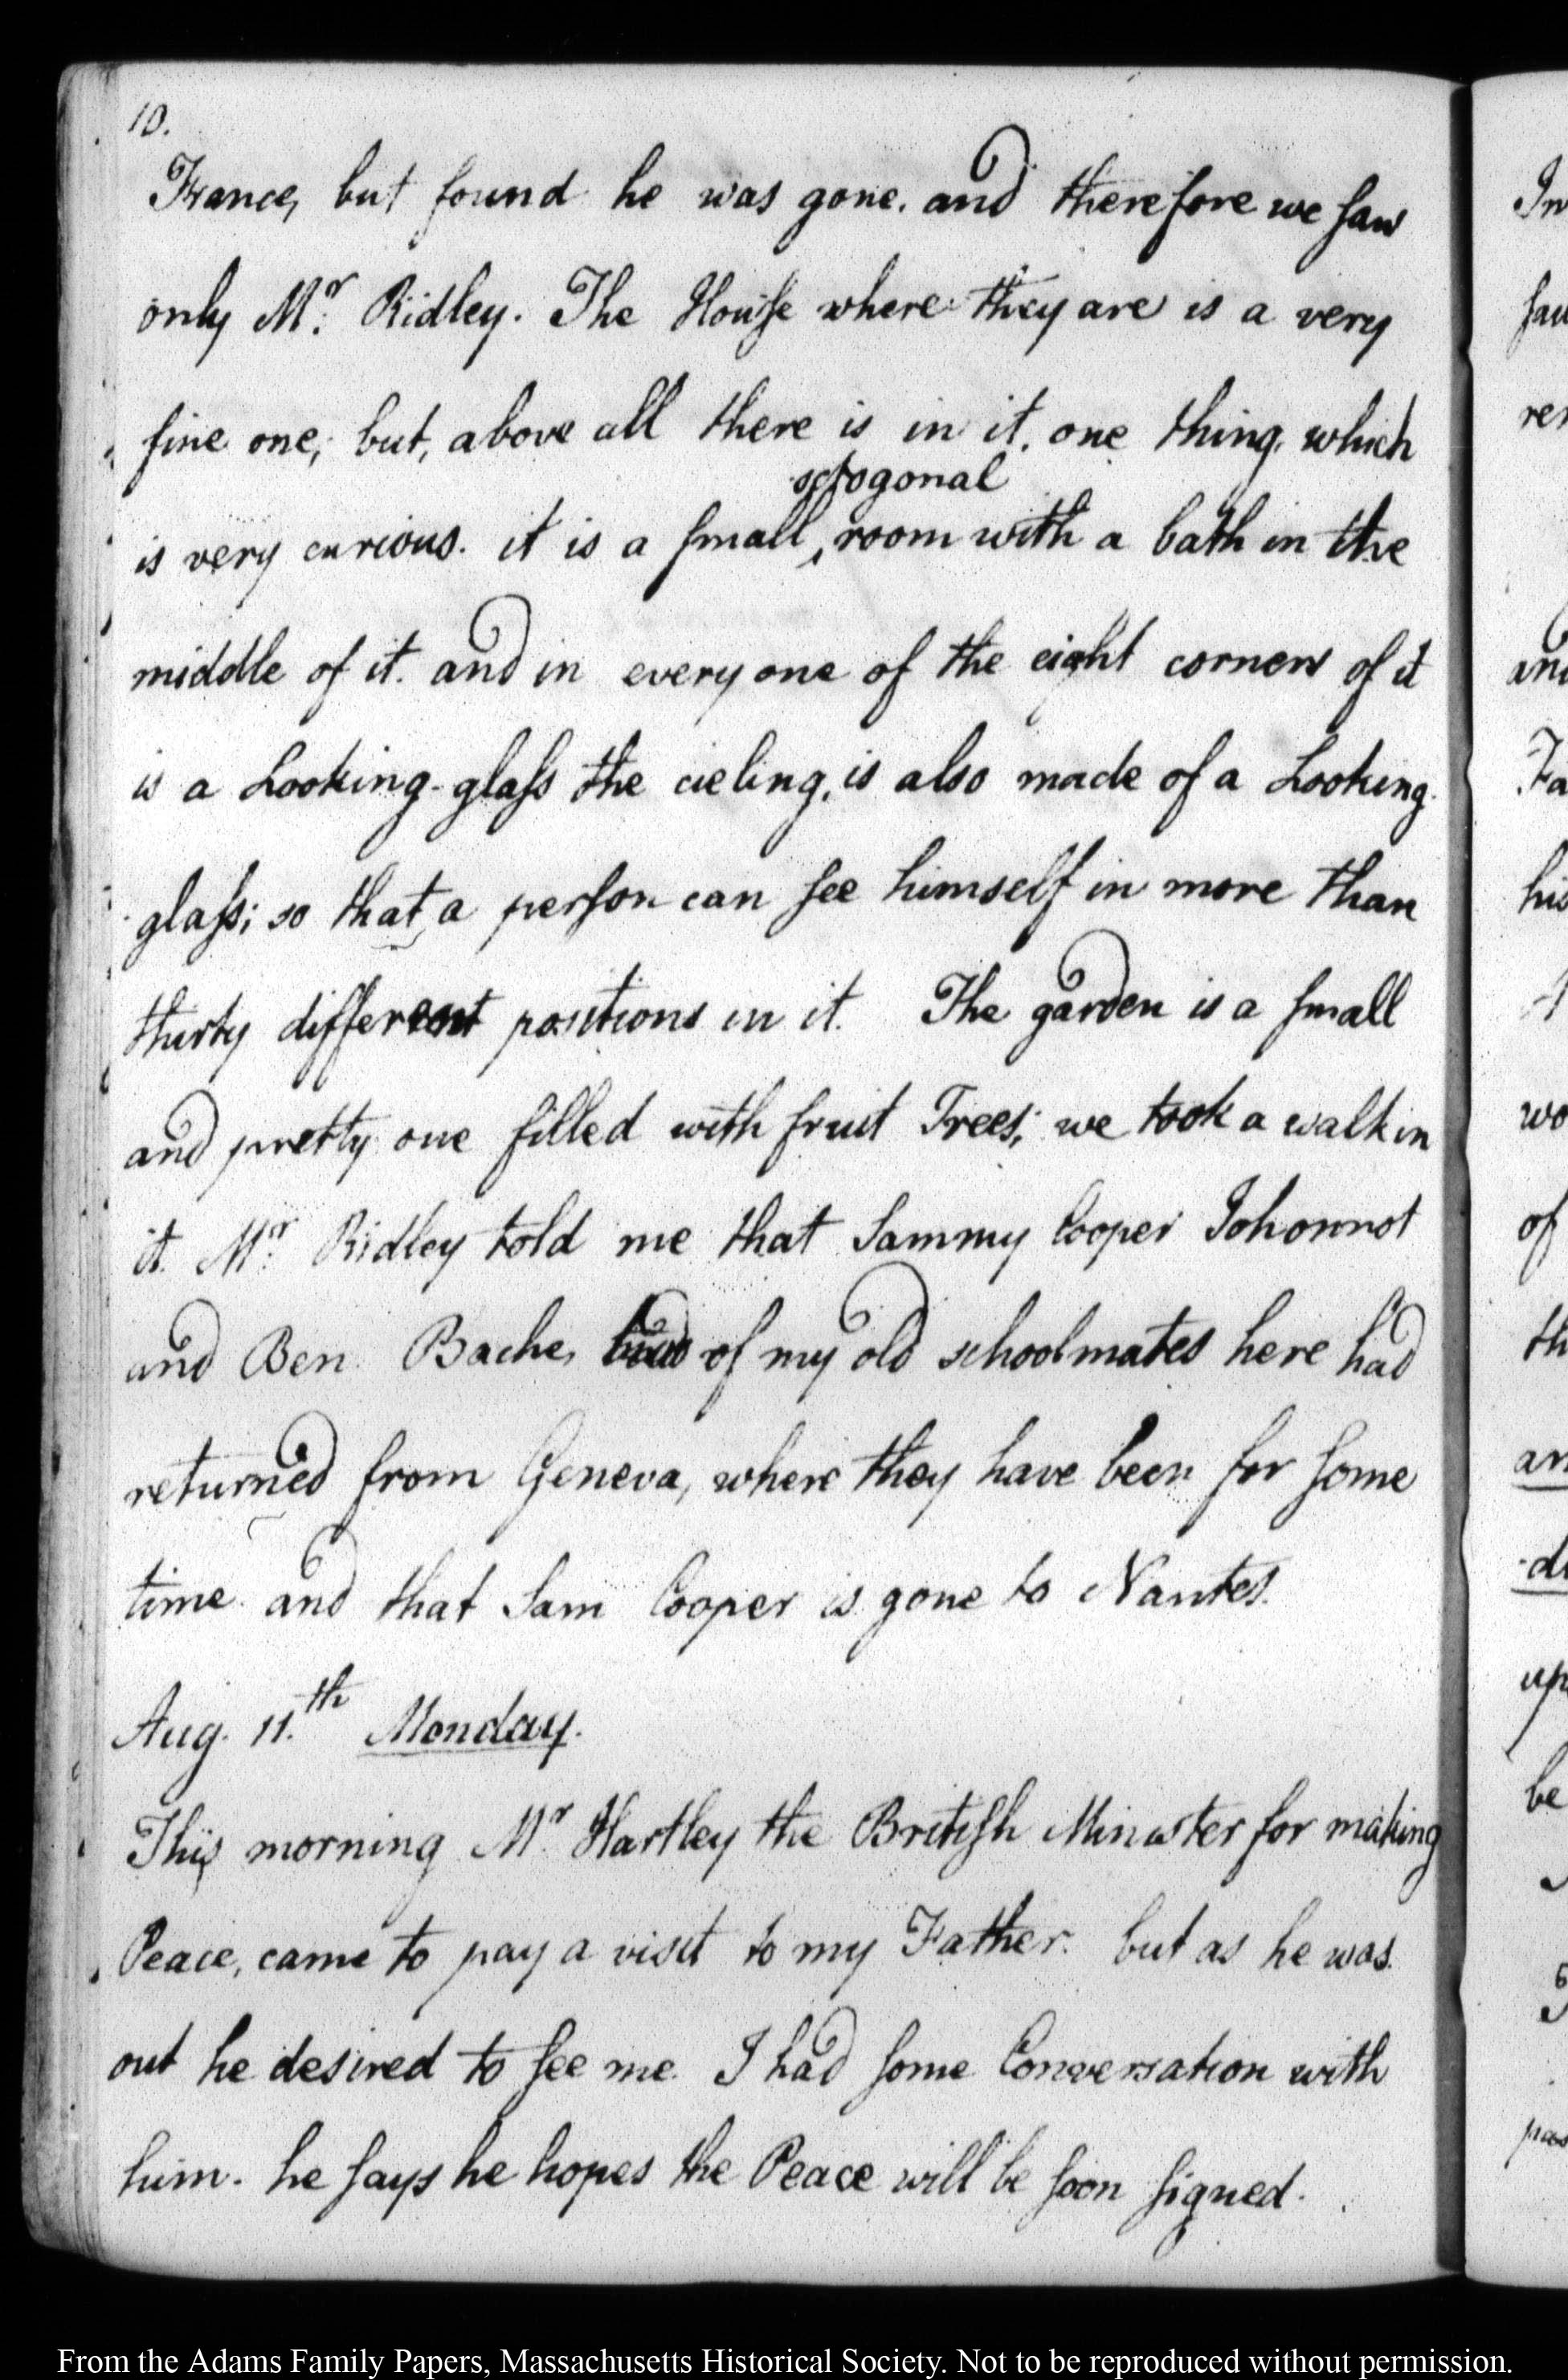 10.
France, but found he was gone. and therefore we saw
only Mr. Ridley. The House where they are is a very
fine one; but, above all there is in it, one thing, which
octogonal
is very curious. it is a small, room with a bath in the
middle of it. and in every one of the eight corners of it
is a Looking-glass the cieling, is also made of a Looking-
glass; so that a person can see himself in more than
thirty different positions in it. The garden is a small
and pretty one filled with fruit Trees; we took a walk in
it. Mr. Ridley told me that Sammy Cooper Johonnot
and Ben Bache, of my old schoolmates here had
returned from Geneva, where they have been for some
time and that Sam Cooper is gone to Nantes.
Aug. 11.th Monday.
This morning Mr. Hartley the British Minister for making
Peace, came to pay a visit to my Father. but as he was
out he desired to see me. I had some Conversation with
him. he says he hopes the Peace will be soon signed.
In
saw
rer
and
Fa
his
wo
of
th
an
di
up
be
pas
From the Adams Family Papers, Massachusetts Historical Society. Not to be reproduced without permission.